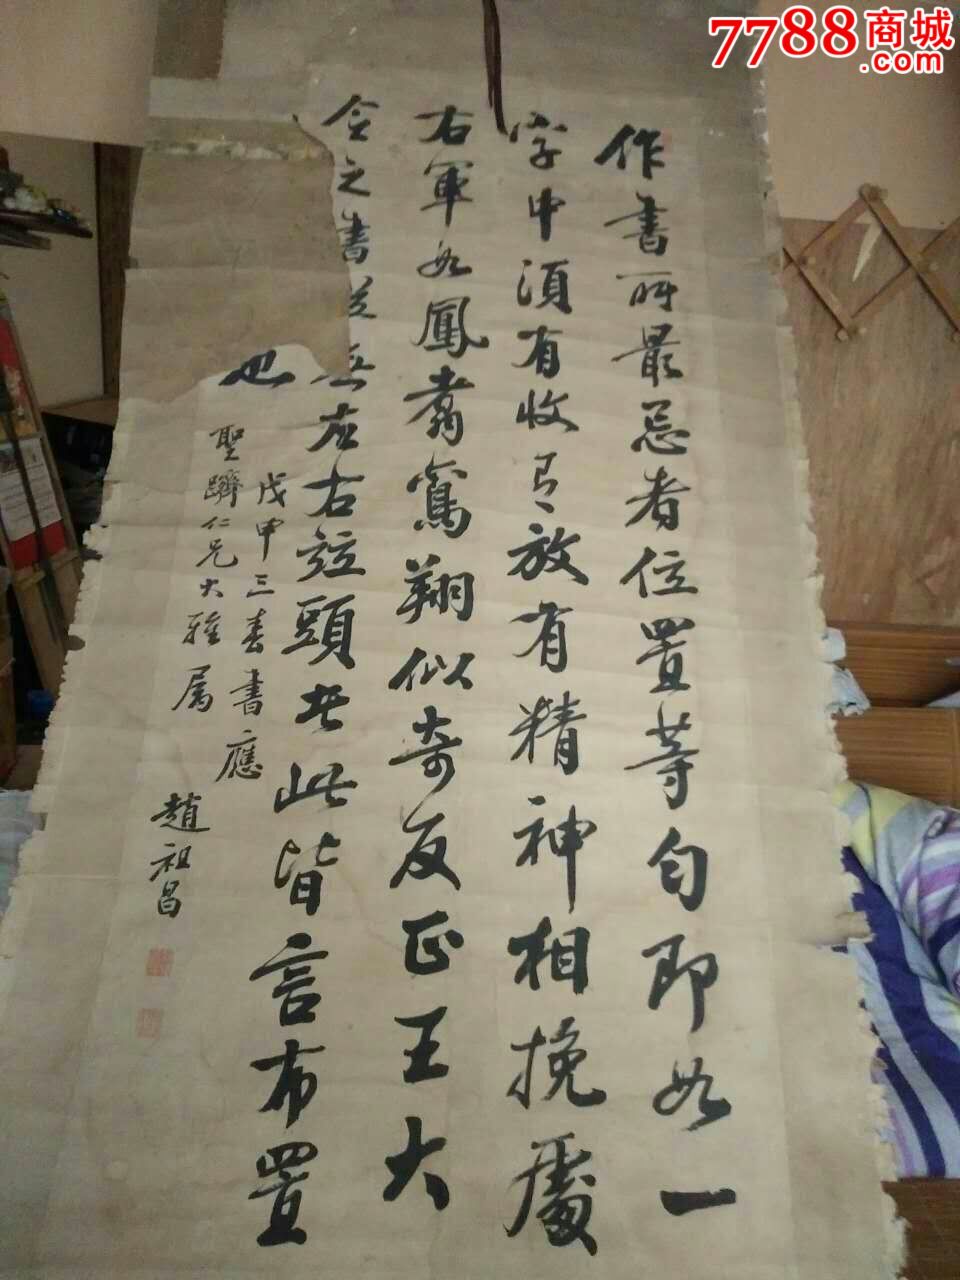 作書所最忌者位置等勻即如一
字中須有收有放有精神相挽處
右軍如鳳翥鸞翔似奇反正王大
令之書從無左右並頭者此皆言布置
也
戊申三春書應
聖躋仁兄大雅屬
趙祖昌
7788商城
.com